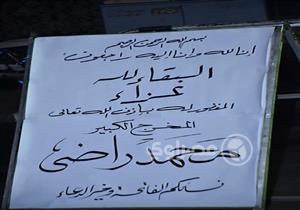 بسم الله الرحمن الرحيم
إنا لله وإنا إليه راجعون
البقاء لله
عزاء
المغفور له بإذن الله تعالى
المخرج الكبير
محمد راضى
نسألكم الفاتحة وخير الدعاء